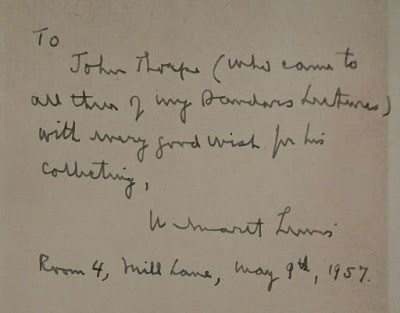 To
John Thorpe (who came to
all three of my Sandars Lectures)
with every good wish for his
collecting,
W. S. Lewis
Room 4, Mill Lane, May 9th, 1957.